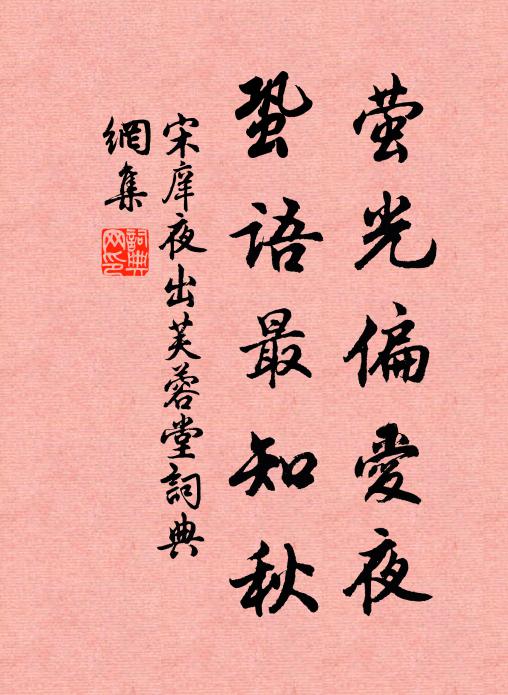 萤光偏愛夜
蛩語最知秋
宋庠夜出芙蓉堂詞典
網集
詞典
网印